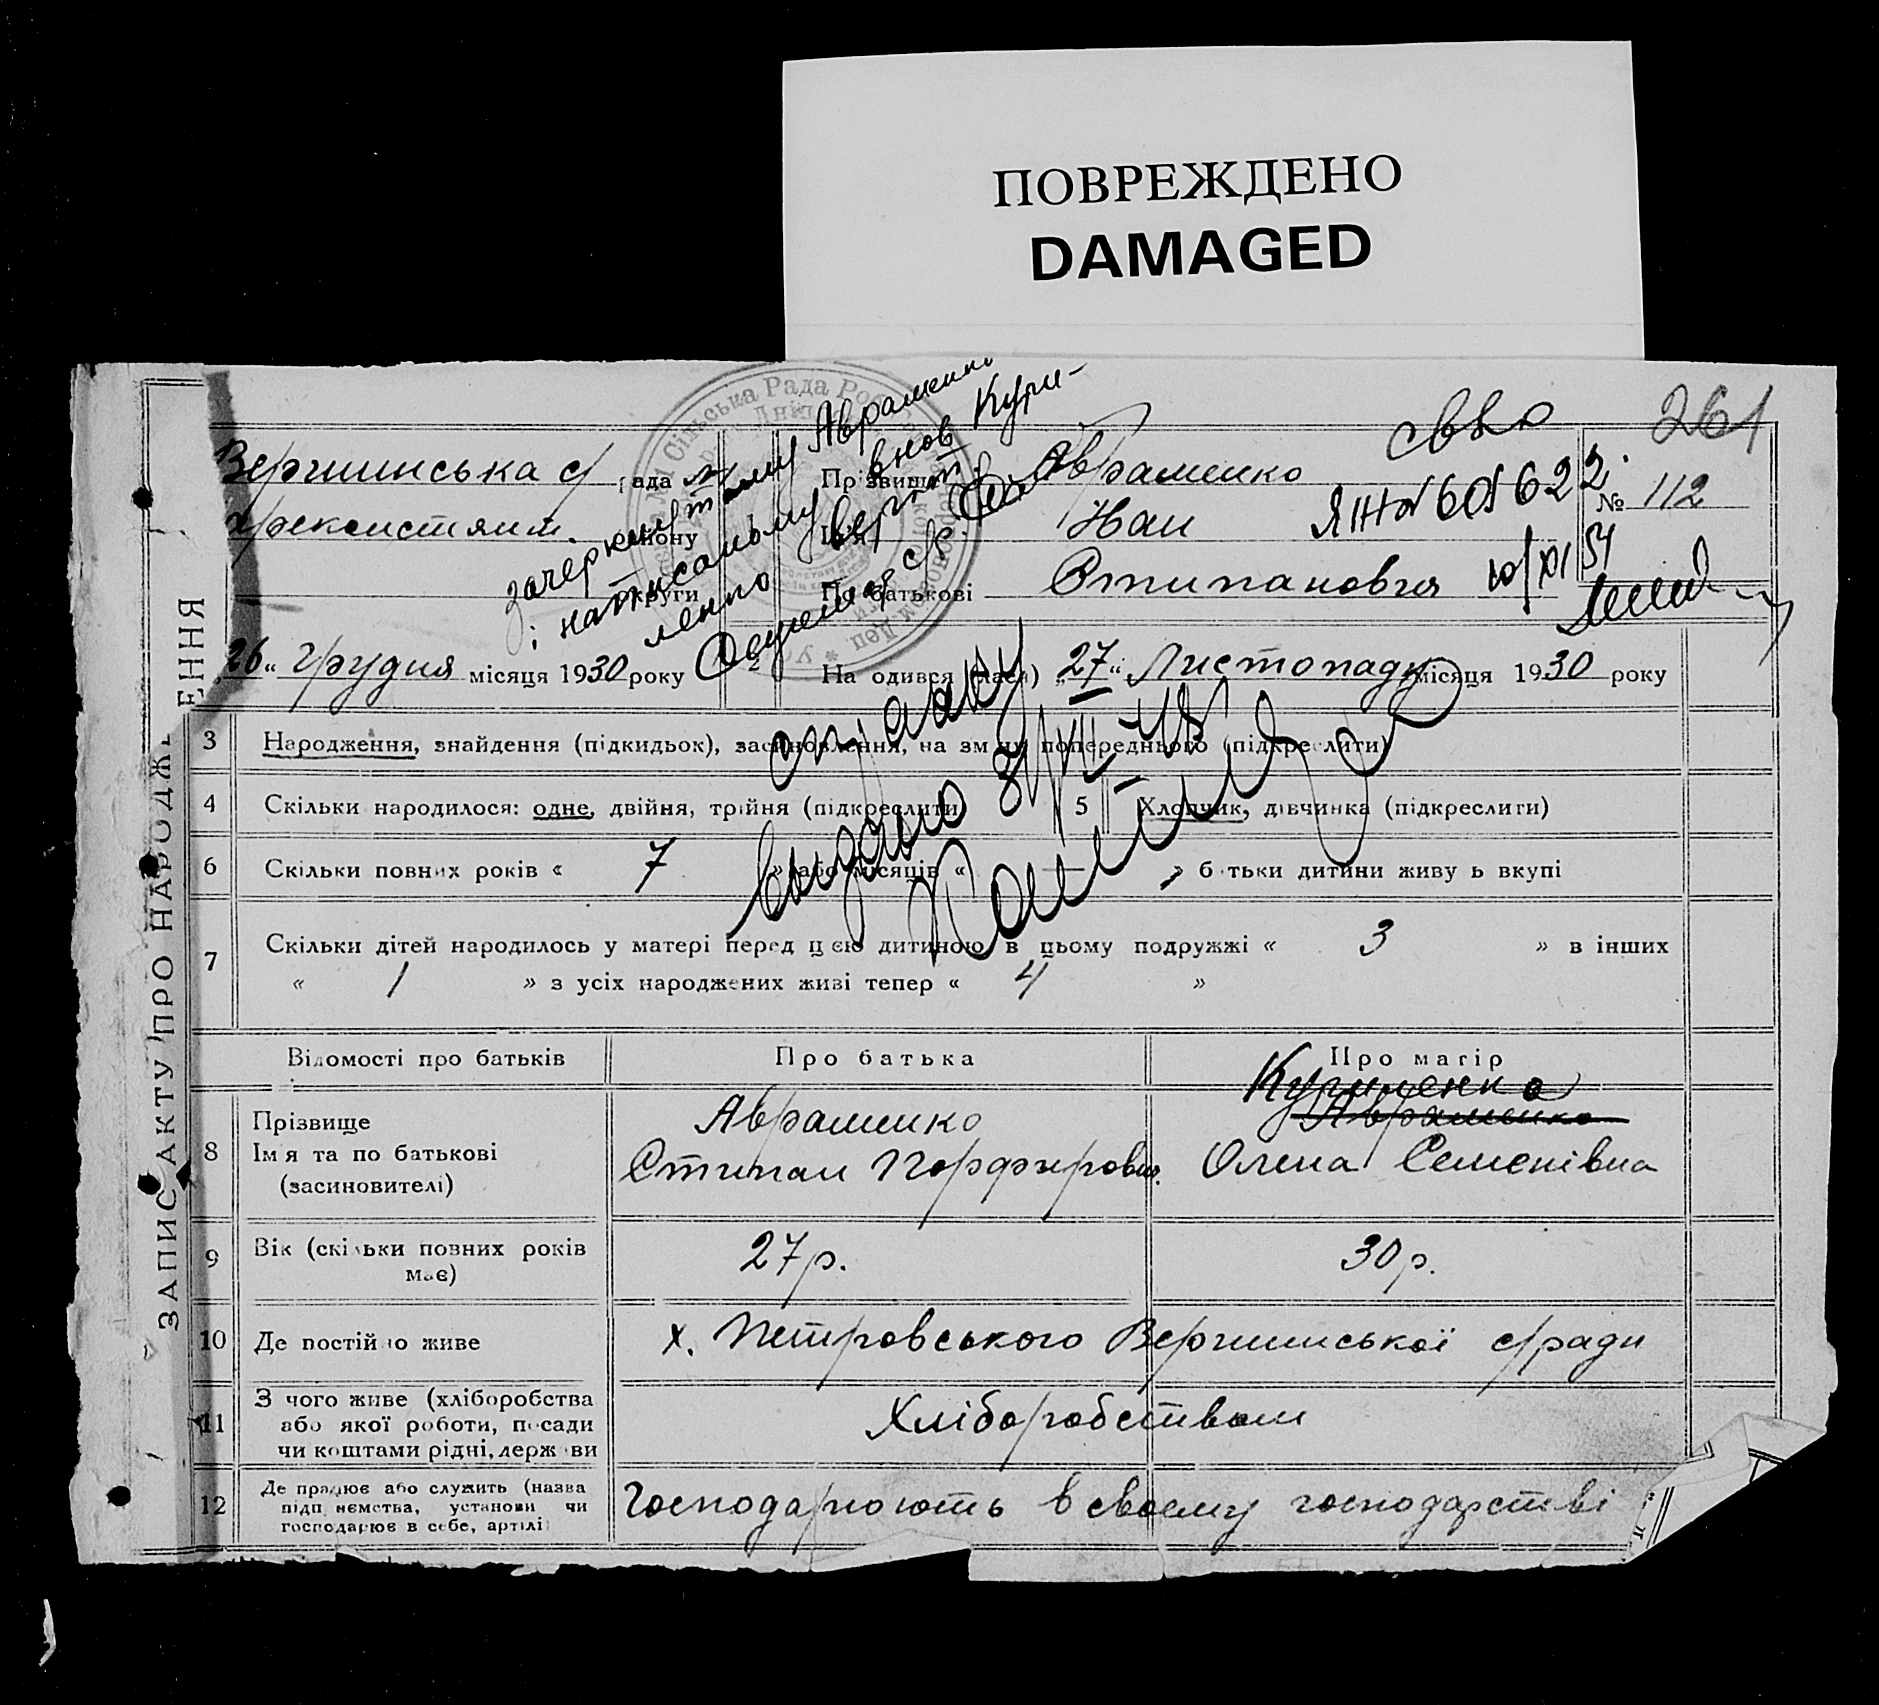 ПОВРЕЖДЕНО
DAMAGED
ЗАПИС АКТУ ПРО НАРОДЖЕННЯ
261
Вершинська с/рада
району
округи
26 „ грудня місяця 1930 року
зачеркнутому Авраменко
написаному
вновь Кури-
ленко верить
Прізвище Авраменко
Іван
По батькові Степанович
№ 112
ЯН № 601622
10/XI 54
2 На одився (лась) „27“ Листопаду місяця 1930 року
справку
Выдано 31/VII-48
3 Народження, знайдення (підкидьок), засиновлення, на зміну попереднього (підкреслити)
4 Скільки народилося: одне, двійня, трійня (підкреслити)
5 Хлопчик, дівчинка (підкреслити)
6 Скільки повних років « 7 » або місяців « — » батьки дитини живуть вкупі
7 Скільки дітей народилось у матері перед цією дитиною в цьому подружжі « 3 » в інших
« 1 » з усіх народжених живі тепер « 4 »
Відомості про батьків
Про батька
Про матір
8 Прізвище
Імя та по батькові
(засиновителі)
Авраменко
Степан Порфирович
Куриленко
Авраменко
Олена Семенівна
9 Вік (скільки повних років
має)
27 р.
30 р.
10 Де постійно живе
х. Петровського Вершинської с/ради
11 З чого живе (хліборобства
або якої роботи, посади
чи коштами рідні, держави
Хліборобством
12 Де працює або служить (назва
підприємства, установи чи
господарює в себе, артілі
Господарюють в своему господарстві